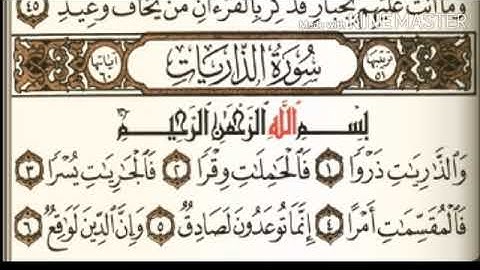 وَمَا أَنتَ عَلَيْهِم بِجَبَّارٍ فَذَكِّرْ بِالْقُرْءَانِ مَن يَخَافُ وَعِيدِ ٤٥
Made with KINEMASTER
ترتيبها ٥١ سُورَةُ الذَّارِيَاتِ آياتها ٦٠
بِسْمِ اللَّهِ الرَّحْمَٰنِ الرَّحِيمِ
وَالذَّارِيَاتِ ذَرْوًا ١ فَالْحَامِلَاتِ وِقْرًا ٢ فَالْجَارِيَاتِ يُسْرًا ٣
فَالْمُقَسِّمَاتِ أَمْرًا ٤ إِنَّمَا تُوعَدُونَ لَصَادِقٌ ٥ وَإِنَّ الدِّينَ لَوَاقِعٌ ٦